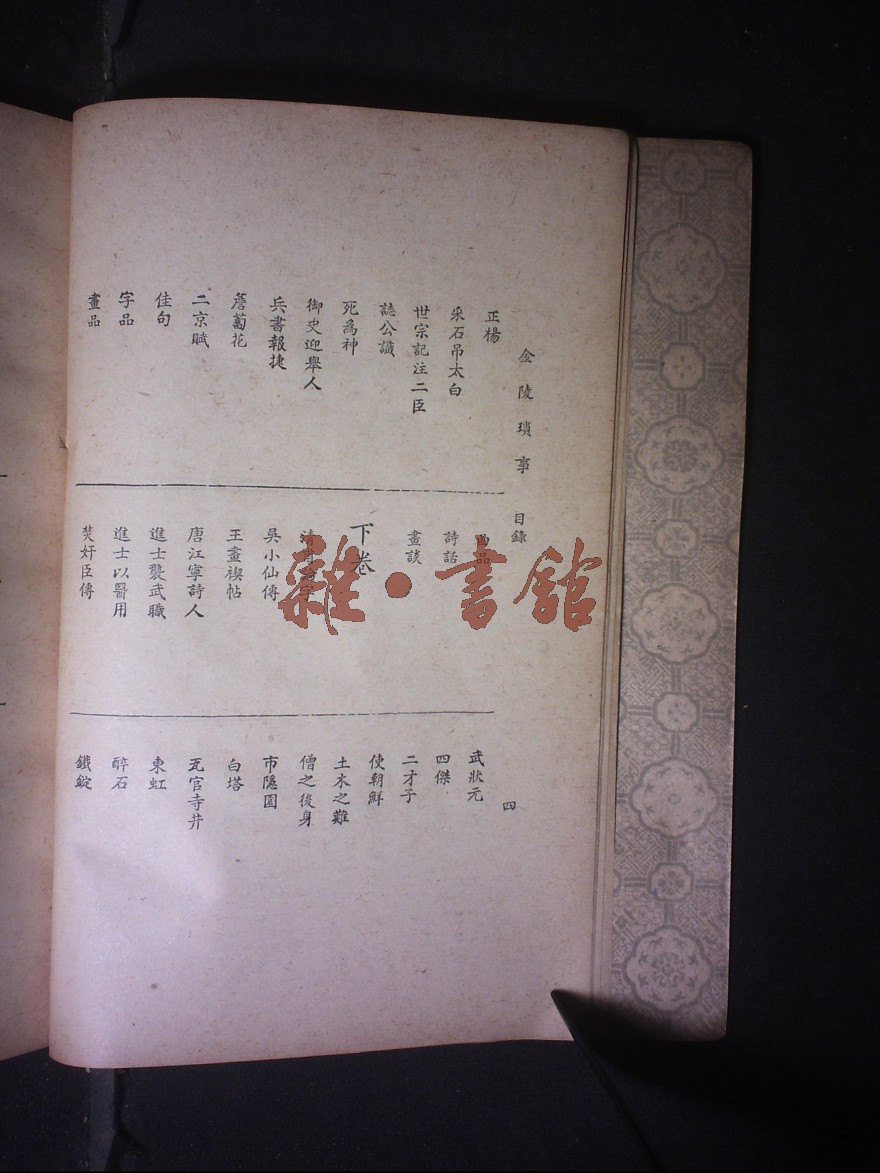 金陵瑣事 目錄 四
正楊
采石吊太白
世宗記注二臣
誌公讖
死為神
御史迎舉人
兵書報捷
薝蔔花
二京賦
佳句
字品
畫品
曲品
詩話
畫談
下卷
吳小仙傳
王畫禊帖
唐江寧詩人
進士襲武職
進士以醫用
焚奸臣傳
武狀元
四傑
二才子
使朝鮮
土木之難
僧之後身
市隱園
白塔
瓦官寺井
東虹
醉石
鐵錠
雜·書館